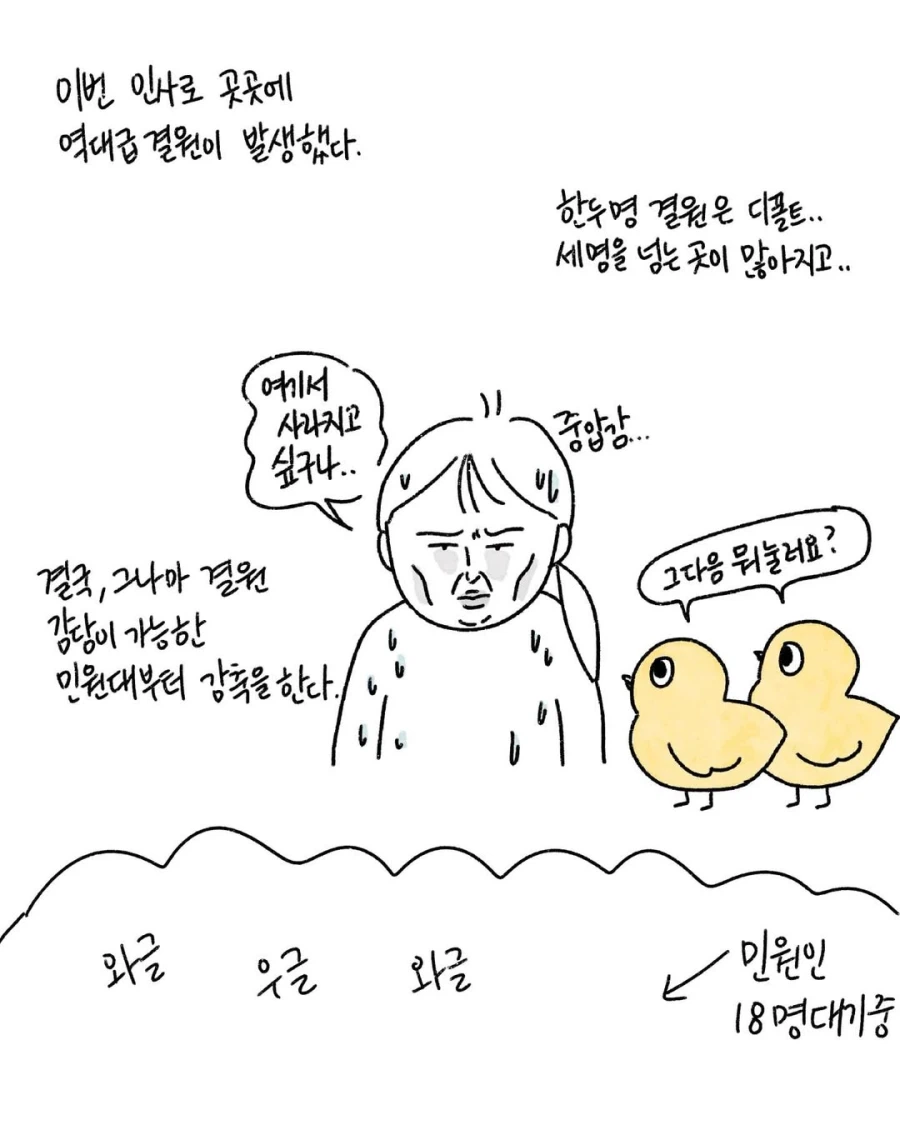 이번 인사로 곳곳에
역대급 결원이 발생했다.
한두명 결원은 디폴트..
세명을 넘는 곳이 많아지고..
여기서
사라지고
싶구나..
중압감...
그다음 뭐눌러요?
결국, 그나마 결원
감당이 가능한
민원대부터 감축을 한다.
와글
우글
와글
민원인
18명대기중